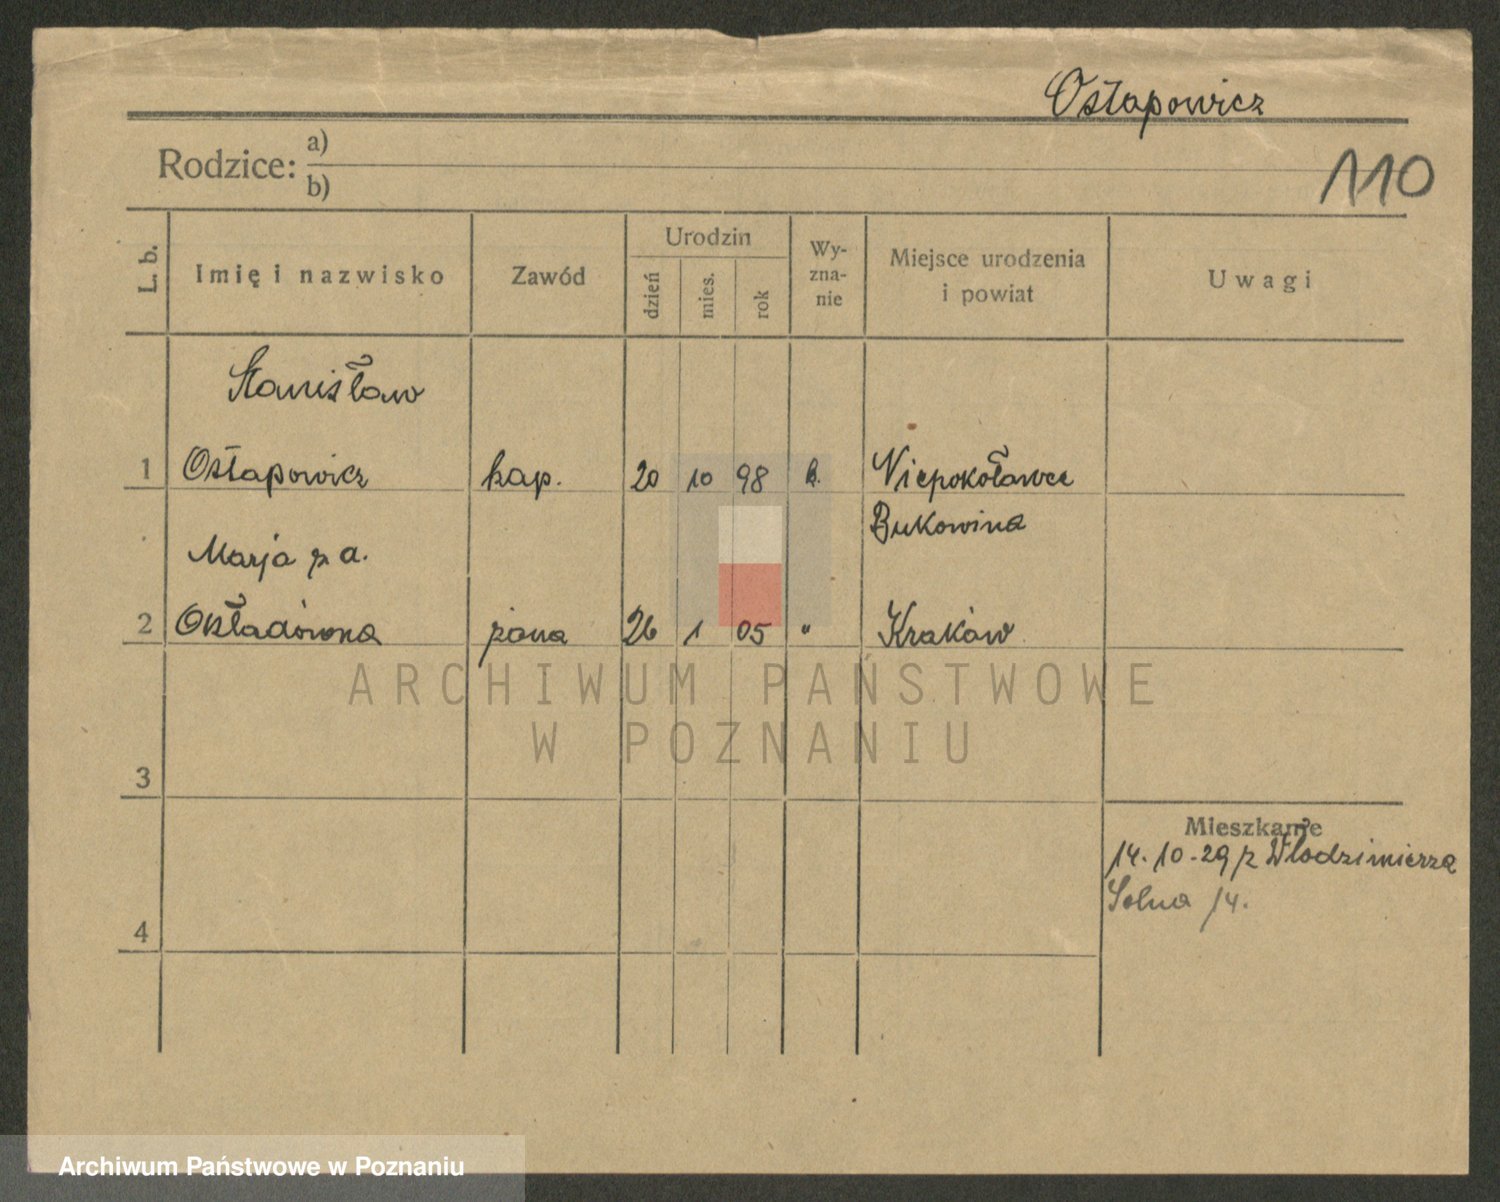 Ostapowicz
Rodzice: a)
b)
110
L. b.
Imię i nazwisko
Zawód
Urodzin
dzień
mies.
rok
Wy-
zna-
nie
Miejsce urodzenia
i powiat
Uwagi
Stanisław
1 Ostapowicz kap. 20 10 98 k. Niepokoławce
Bukowina
Marja z d.
2 żona 26 1 05 " Kraków
ARCHIWUM PAŃSTWOWE
W POZNANIU
3
Mieszkanie
14.10.29 z Włodzimierza
Solna 14.
4
Archiwum Państwowe w Poznaniu